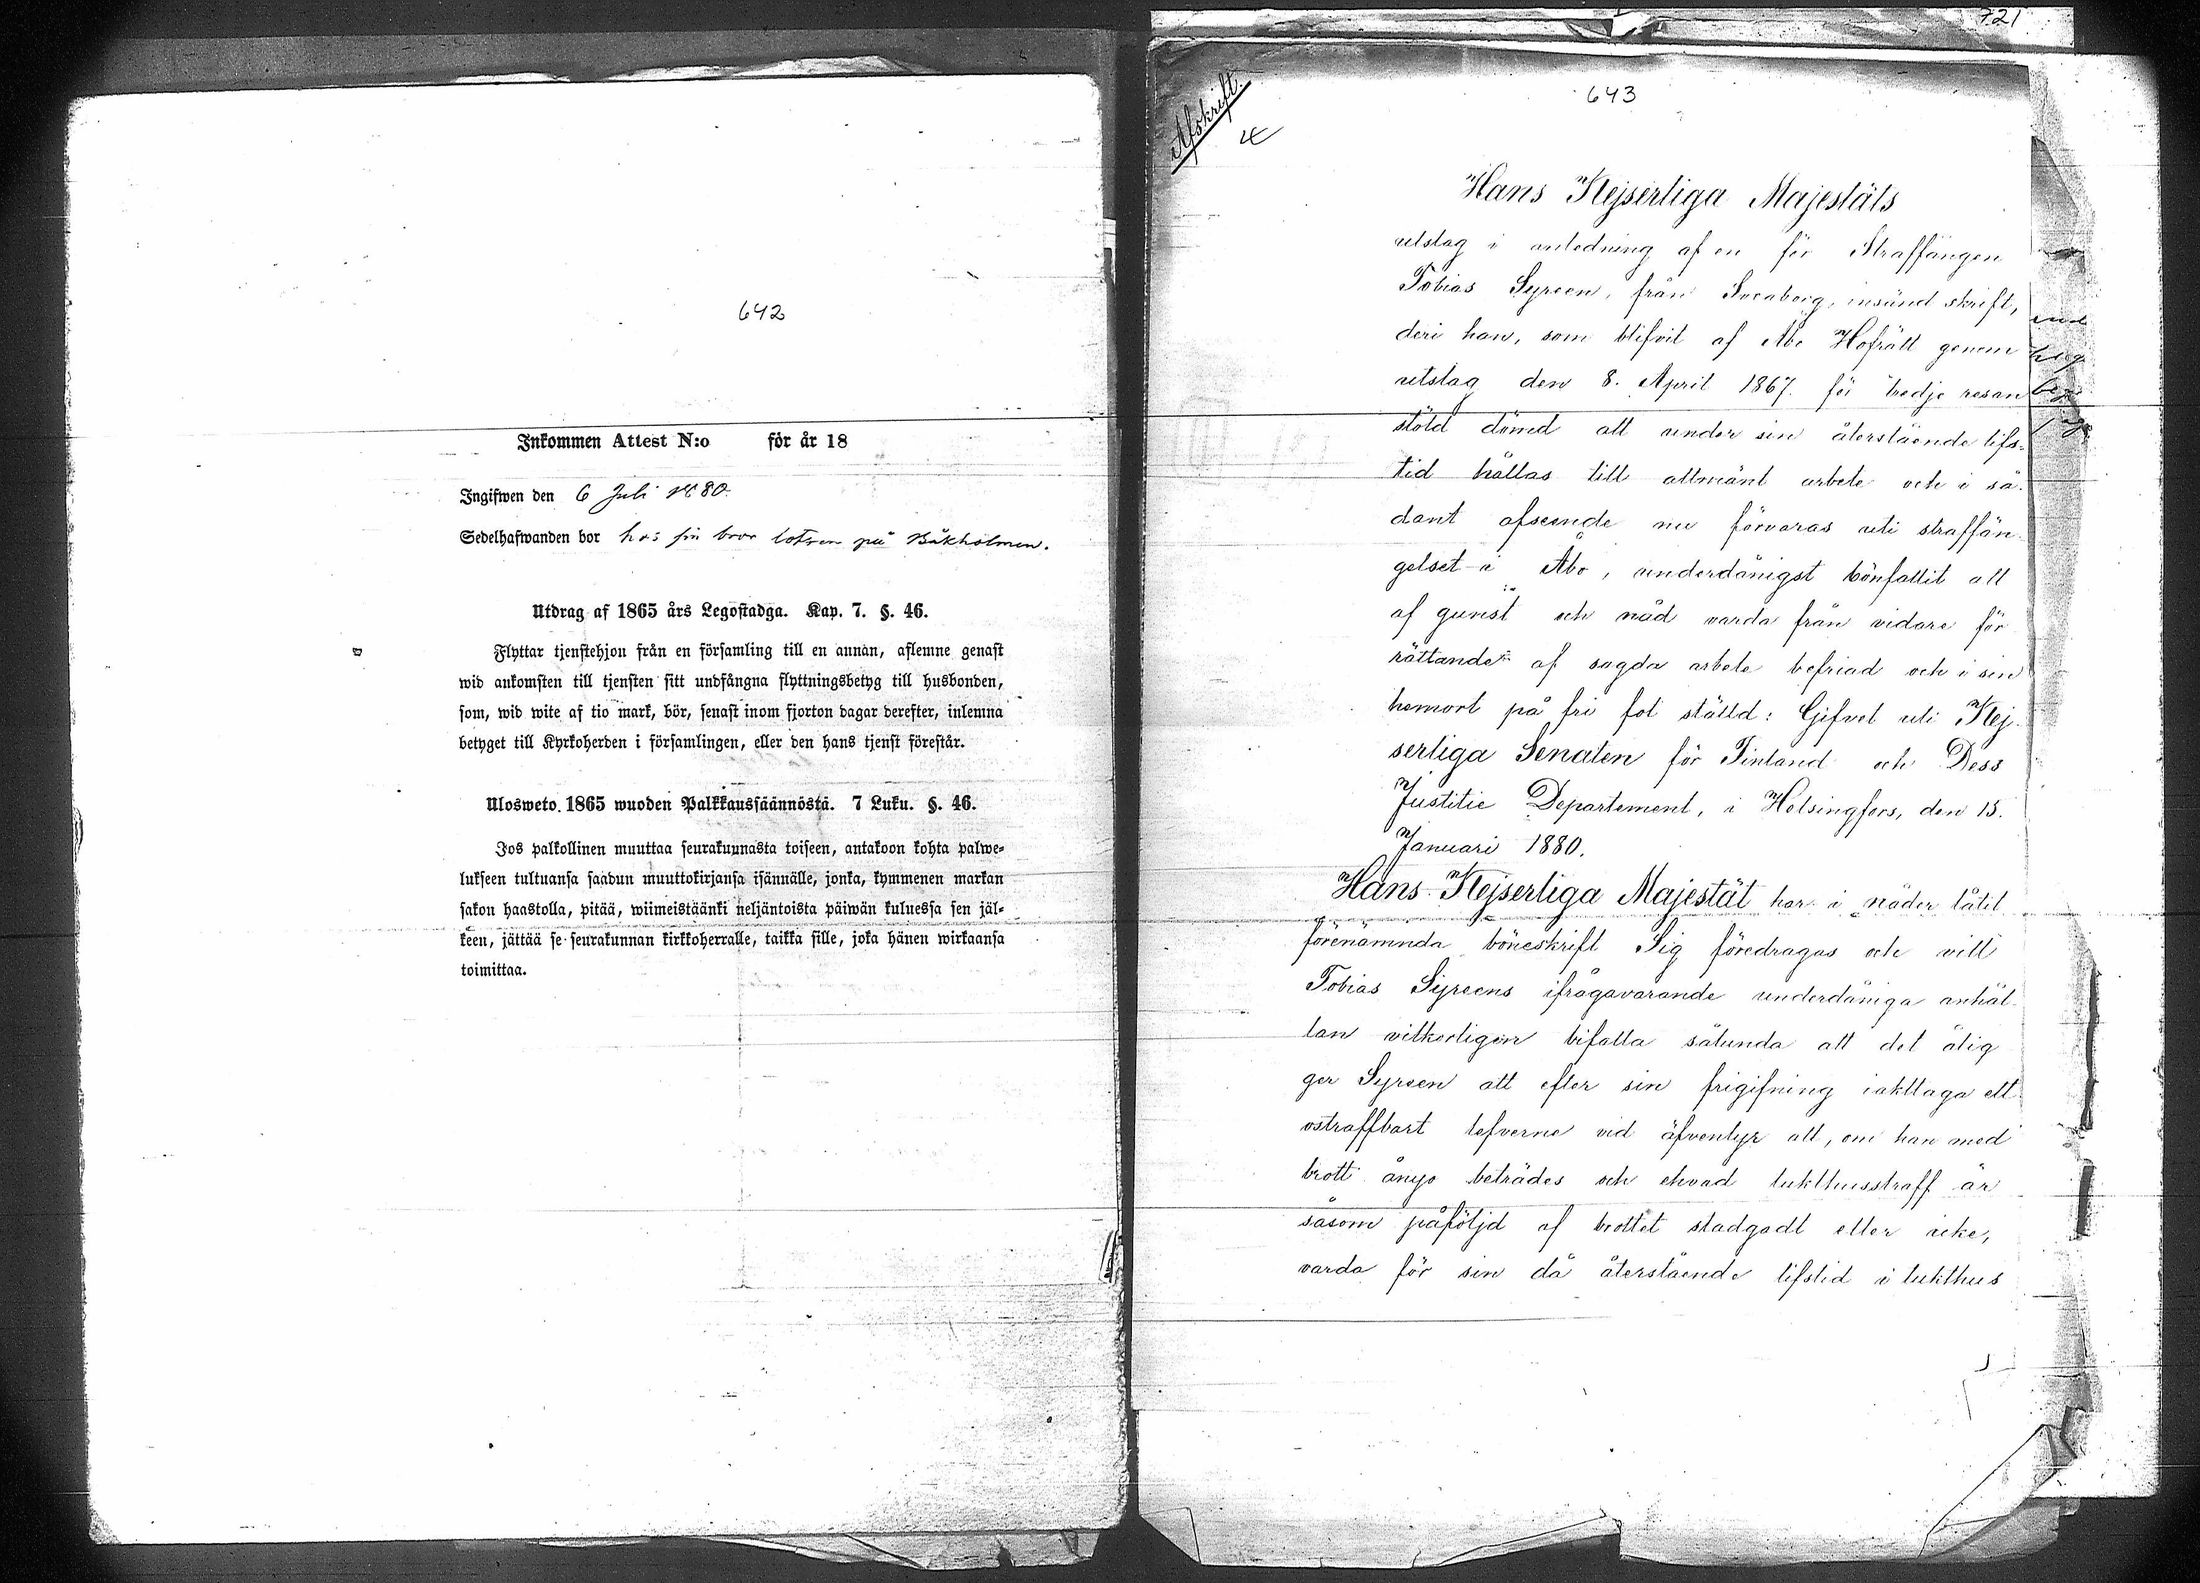 642
Inkommen Attest N:o för år 18
Ingifwen den 6 Juli 1880.
Sedelhafwanden bor hos sin bror lotsen på Båkholmen.
Utdrag af 1865 års Legostadga. Kap. 7. §. 46.
Flyttar tjenstehjon från en församling till en annan, aflemne genast
wid ankomsten till tjensten sitt undfångna flyttningsbetyg till husbonden,
som, wid wite af tio mark, bör, senast inom fjorton dagar derefter, inlemna
betyget till Kyrkoherden i församlingen, eller den hans tjenst förestår.
Ulosweto 1865 wuoden Palkkaussäännöstä. 7 Luku. §. 46.
Jos palkollinen muuttaa seurakunnasta toiseen, antakoon kohta palwe-
lukseen tultuansa saadun muuttokirjansa isännälle, jonka, kymmenen markan
sakon haastolla, pitää, wiimeistäänki neljäntoista päiwän kuluessa sen jäl-
keen, jättää se seurakunnan kirkkoherralle, taikka sille, joka hänen wirkaansa
toimittaa.
721
643
Afskrift.
Hans Kejserliga Majestäts
utslag i anledning af en för Straffången
Tobias Syreen, från Sveaborg, insänd skrift,
deri han, som blifvit af Åbo Hofrätt genom
utslag den 8. April 1867 för tredje resan
stöld dömd att under sin återstående lifs-
tid hållas till allmänt arbete och i så-
dant afseende nu förvaras uti straffän-
gelset i Åbo, underdånigst bönfallit att
af gunst och nåd varda från vidare för-
rättande af sagda arbete befriad och i sin
hemort på fri fot ställd: Gifvet uti Kej-
serliga Senaten för Finland och Dess
Justitie Departement, i Helsingfors, den 15.
Januari 1880.
Hans Kejserliga Majestät har i nåder låtit
förenämnda böneskrift Sig föredragas och vill
Tobias Syreens ifrågavarande underdåniga anhål-
lan vilkorligen bifalla sålunda att det ålig-
ger Syreen att efter sin frigifning iakttaga ett
ostraffbart lefverne vid äfventyr att, om han med
brott ånyo beträdes och ehvad tukthusstraff är
såsom påföljd af brottet stadgadt eller icke,
varda för sin då återstående lifstid i tukthus